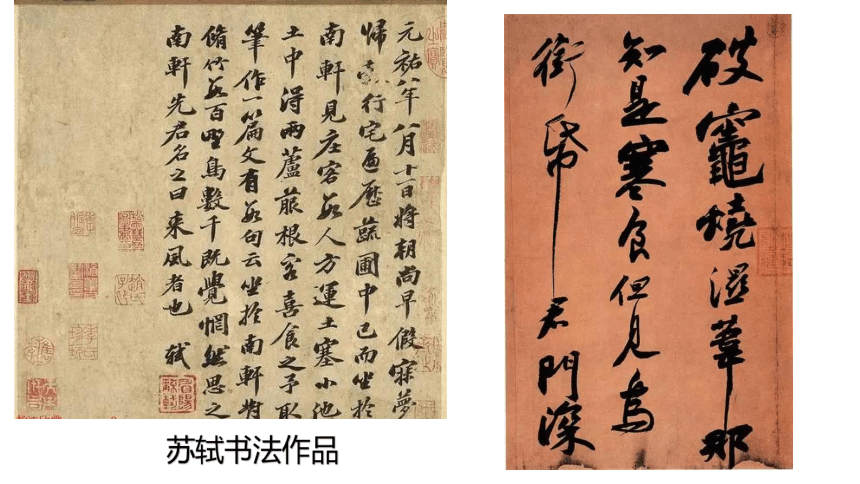 元祐八年八月十一日將朝尚早假寐夢
歸縠行宅遍歷蔬圃中已而坐於
南軒見庄客數人方運土塞小池
土中得兩蘆菔根客喜食之予取
筆作一篇文有數句云坐於南軒對
脩竹數百野鳥數千既覺惘然思之
南軒先君名之曰來風者也 軾
破竈燒溼葦那
知是寒食但見烏
銜帋君門深
苏轼书法作品